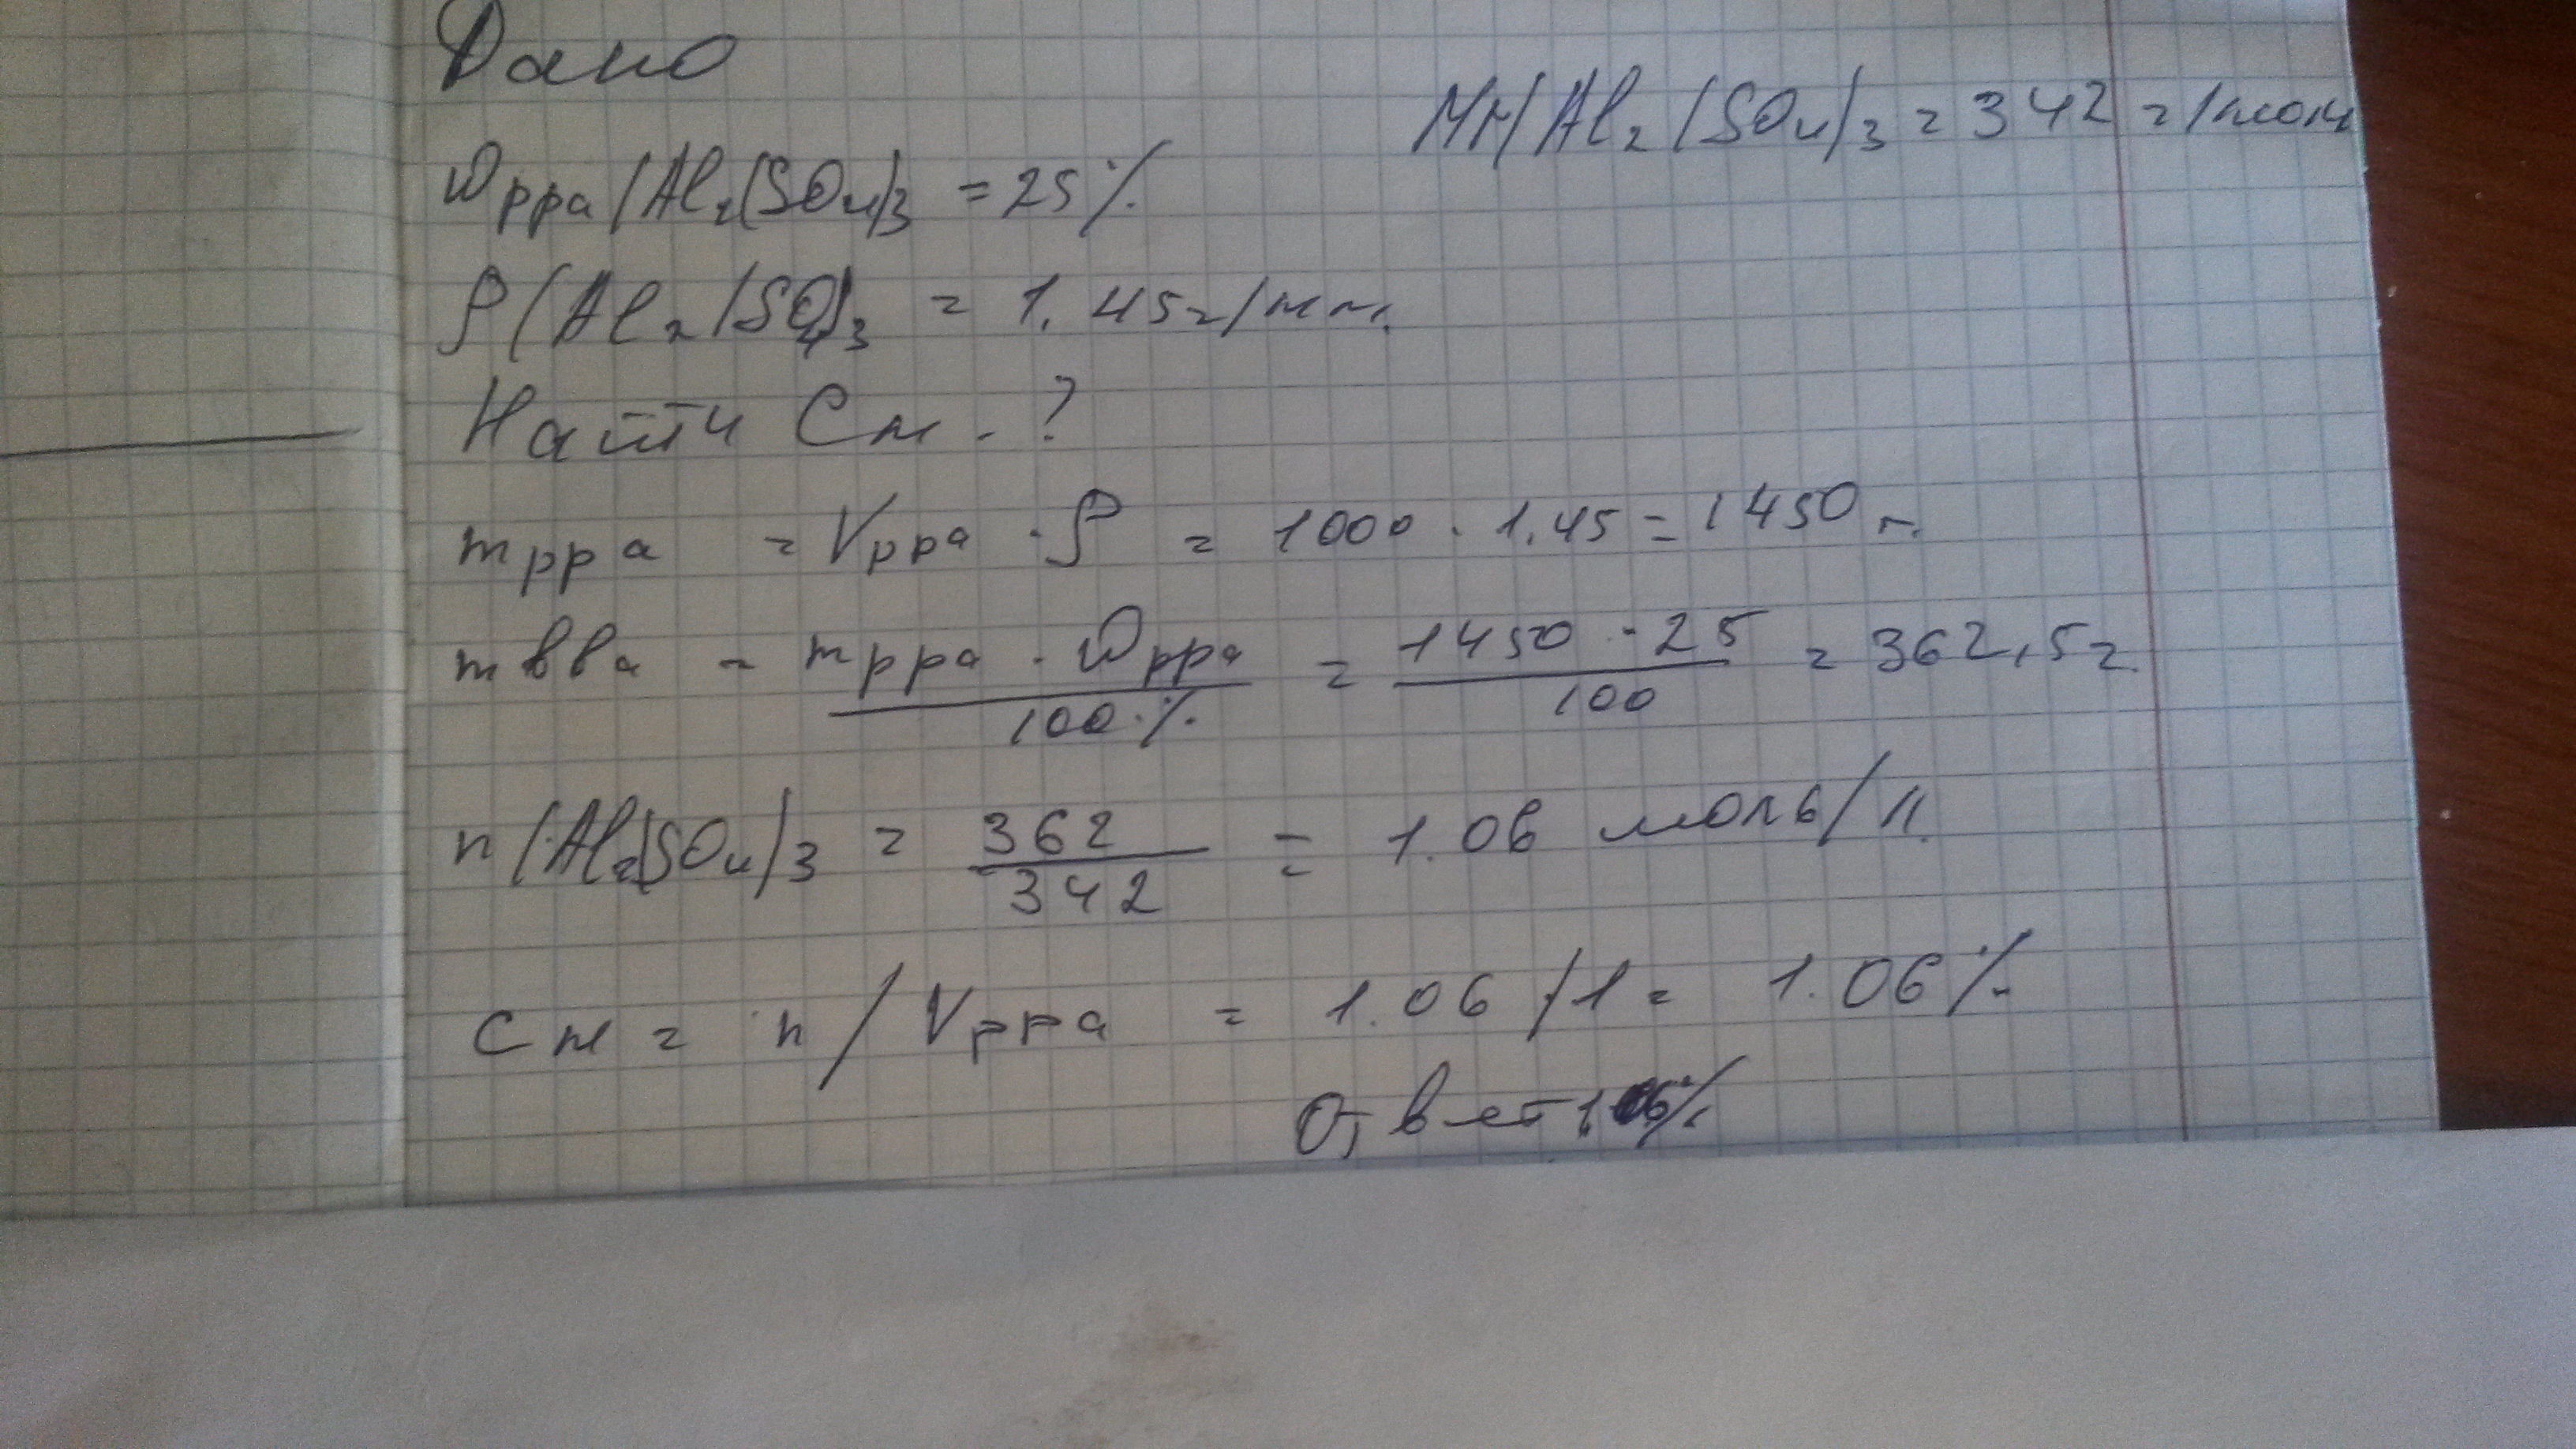 Дано
Mr/Al₂/SO₄/₃ = 342 г/моль
ωрра/Al₂(SO₄)₃ = 25%
ρ(Al₂/SO₄)₃ = 1.45г/мл.
Найти См - ?
mрра = Vрра · ρ = 1000 · 1.45 = 1450 г.
mвва = mрра · ωрра / 100% = 1450 · 25 / 100 = 362,5г.
n/Al₂(SO₄)₃ = 362 / 342 = 1.06 моль/л.
См = n / Vрра = 1.06 / 1 = 1.06%
Ответ 1,06%